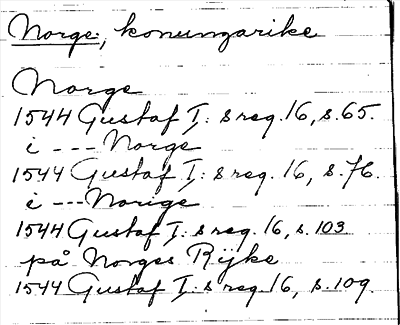 Norge, konungarike
Norge
1544 Gustaf I: s reg. 16, s. 65.
i --- Norge
1544 Gustaf I: s reg. 16, s. 76.
i --- Norige
1544 Gustaf I: s reg. 16, s. 103
på Norges Rijke
1544 Gustaf I: s reg. 16, s. 109.